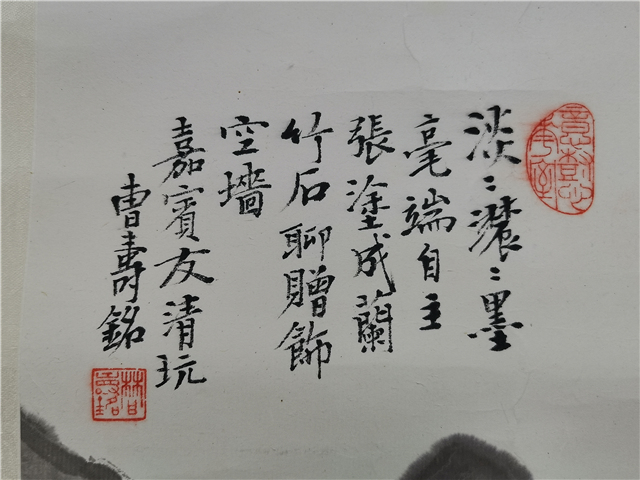 淡〻濃〻墨
毫端自主
張塗成蘭
竹石聊贈飾
空墻
嘉賓友清玩
曹壽銘